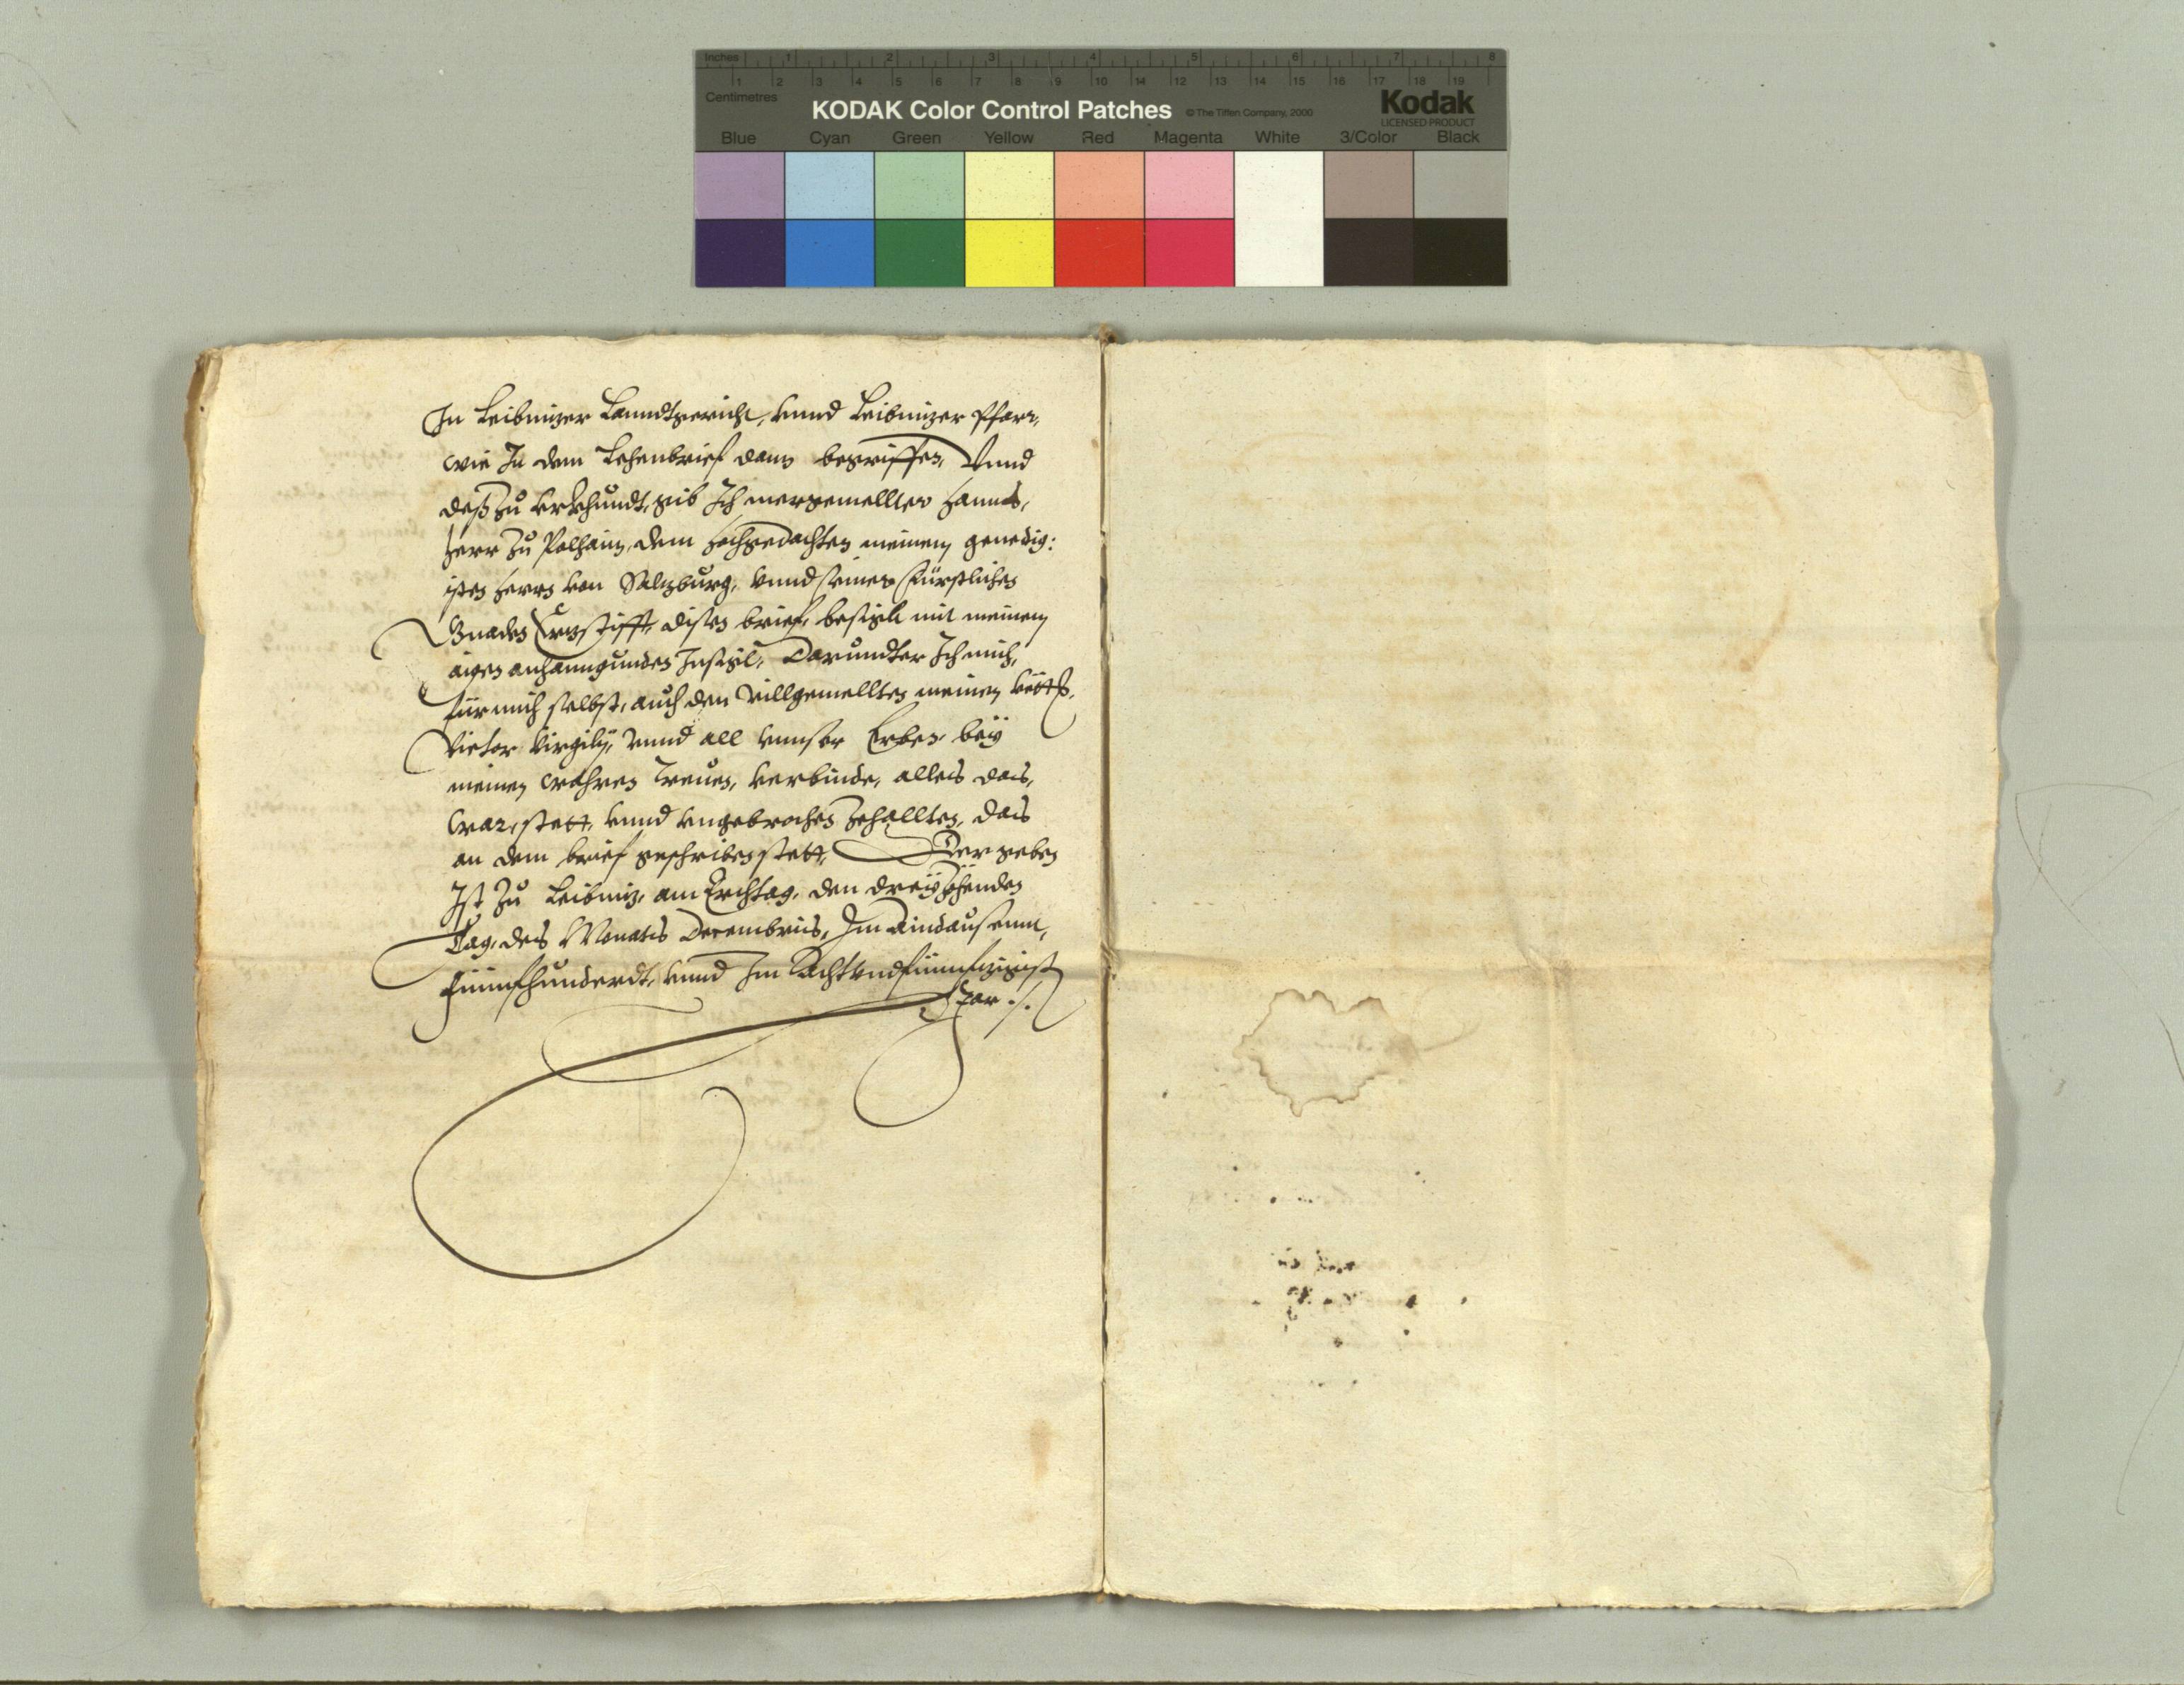 Inches 1 2 3 4 5 6 7 8
1 2 3 4 5 6 7 8 9 10 11 12 13 14 15 16 17 18 19
Centimetres
KODAK Color Control Patches © The Tiffen Company, 2000 Kodak
LICENSED PRODUCT
Blue Cyan Green Yellow Red Magenta White 3/Color Black
In Leibnizer Lanndtgericht, vnnd Leibnizer Pfarr,
wie In dem Lehenbrief dann begriffen, Vnnd
deß zu Vrkhundt, gib Ich mergemellter Hanns,
Herr zu Polhaim, dem hochgedachten meinem genedig:
isten herrn von Salzburg, vnnd seiner Fürstlichen
Gnaden Erzstifft, disen brief, besiglt mit meinem
aigen anhanngunden Insigil, Darundter Ich mich,
für mich selbst, auch den villgemellten meinen
Victor Virgilÿ, vnnd all vnnser Erben, beÿ
meinen wahren Treuen, verbinde, alles das,
war, stett, vnnd vngebrochen zehallten, das
an dem brief geschriben stett, Der geben
Ist zu Leibniz, am Erchtag, den dreÿzehenden
Tag, des Monats Decembris, Im Aindausennt,
Fünnfhunderdt, vnnd Im Acht vnd fünnfzigist
Jar ./.